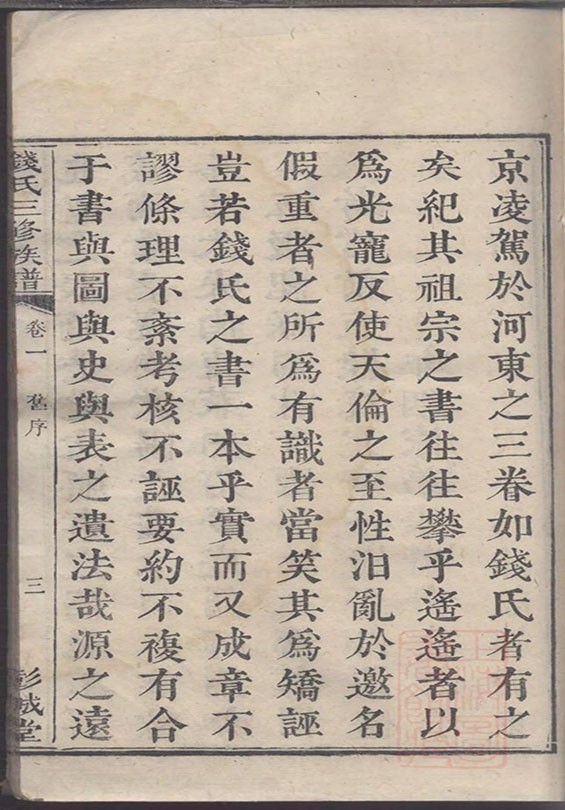 京凌駕於河東之三卷如錢氏者有之
矣紀其祖宗之書往往攀乎遙遙者以
爲光寵反使天倫之至性汨亂於邀名
假重者之所爲有識者當笑其爲矯誣
豈若錢氏之書一本乎實而又成章不
謬條理不紊考核不誣要約不複有合
于書與圖與史與表之遺法哉源之遠
錢氏三修族譜 卷一 舊序 三 彭城堂